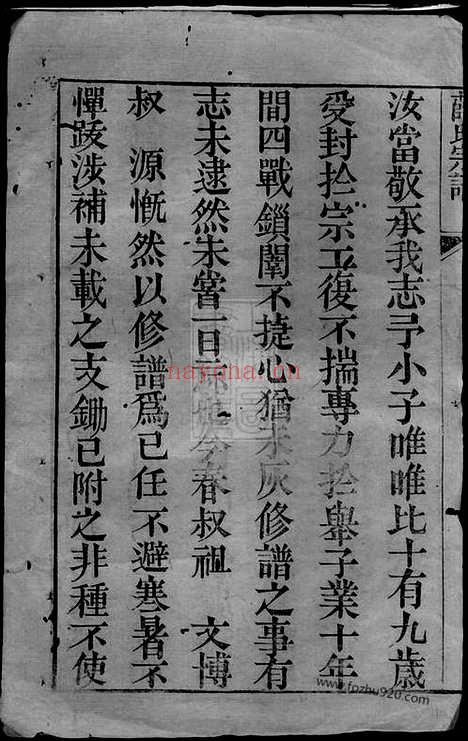 薛氏宗譜
汝當敬承我志予小子唯唯比十有九歲
受封於宗工復不揣專力於舉子業十年
間四戰鎖闈不捷心猶未灰修譜之事有
志未逮然未嘗一日忘也今春叔祖 文博
叔 源慨然以修譜爲己任不避寒暑不
憚跋涉補未載之支鋤已附之非種不使
nayona.cn
www.fozhu920.com